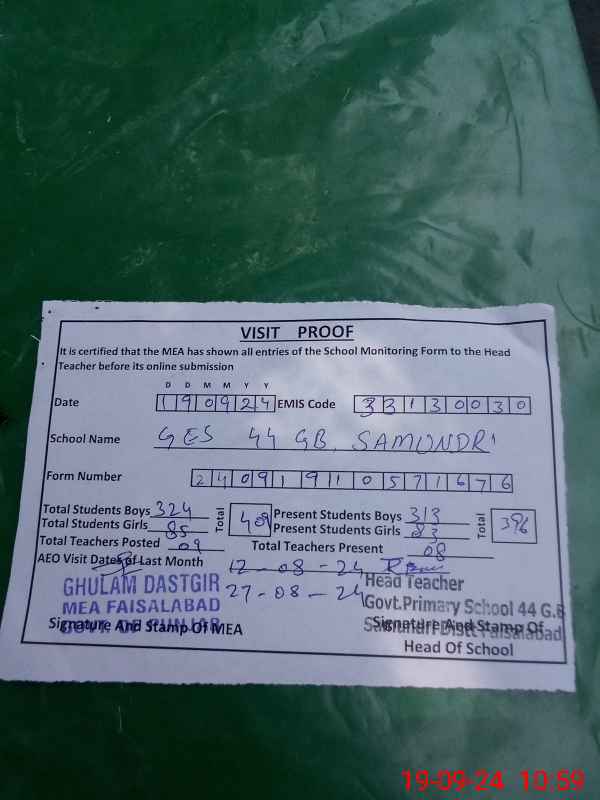 VISIT PROOF
It is certified that the MEA has shown all entries of the School Monitoring Form to the Head
Teacher before its online submission
D D M M Y Y
Date 190924 EMIS Code 33130030
School Name GES 44 GB, SAMUNDRI
Form Number 24091910571676
Total Students Boys 324 Total 409 Present Students Boys 313 Total 396
Total Students Girls 85 Present Students Girls 83
Total Teachers Posted 09 Total Teachers Present 08
AEO Visit Dates of Last Month 12-08-24
27-08-24
GHULAM DASTGIR
MEA FAISALABAD
GOVT. OF PUNJAB
Signature And Stamp Of MEA
Head Teacher
Govt.Primary School 44 G.B
Samundri Distt Faisalabad
Signature And Stamp Of
Head Of School
19-09-24 10:59